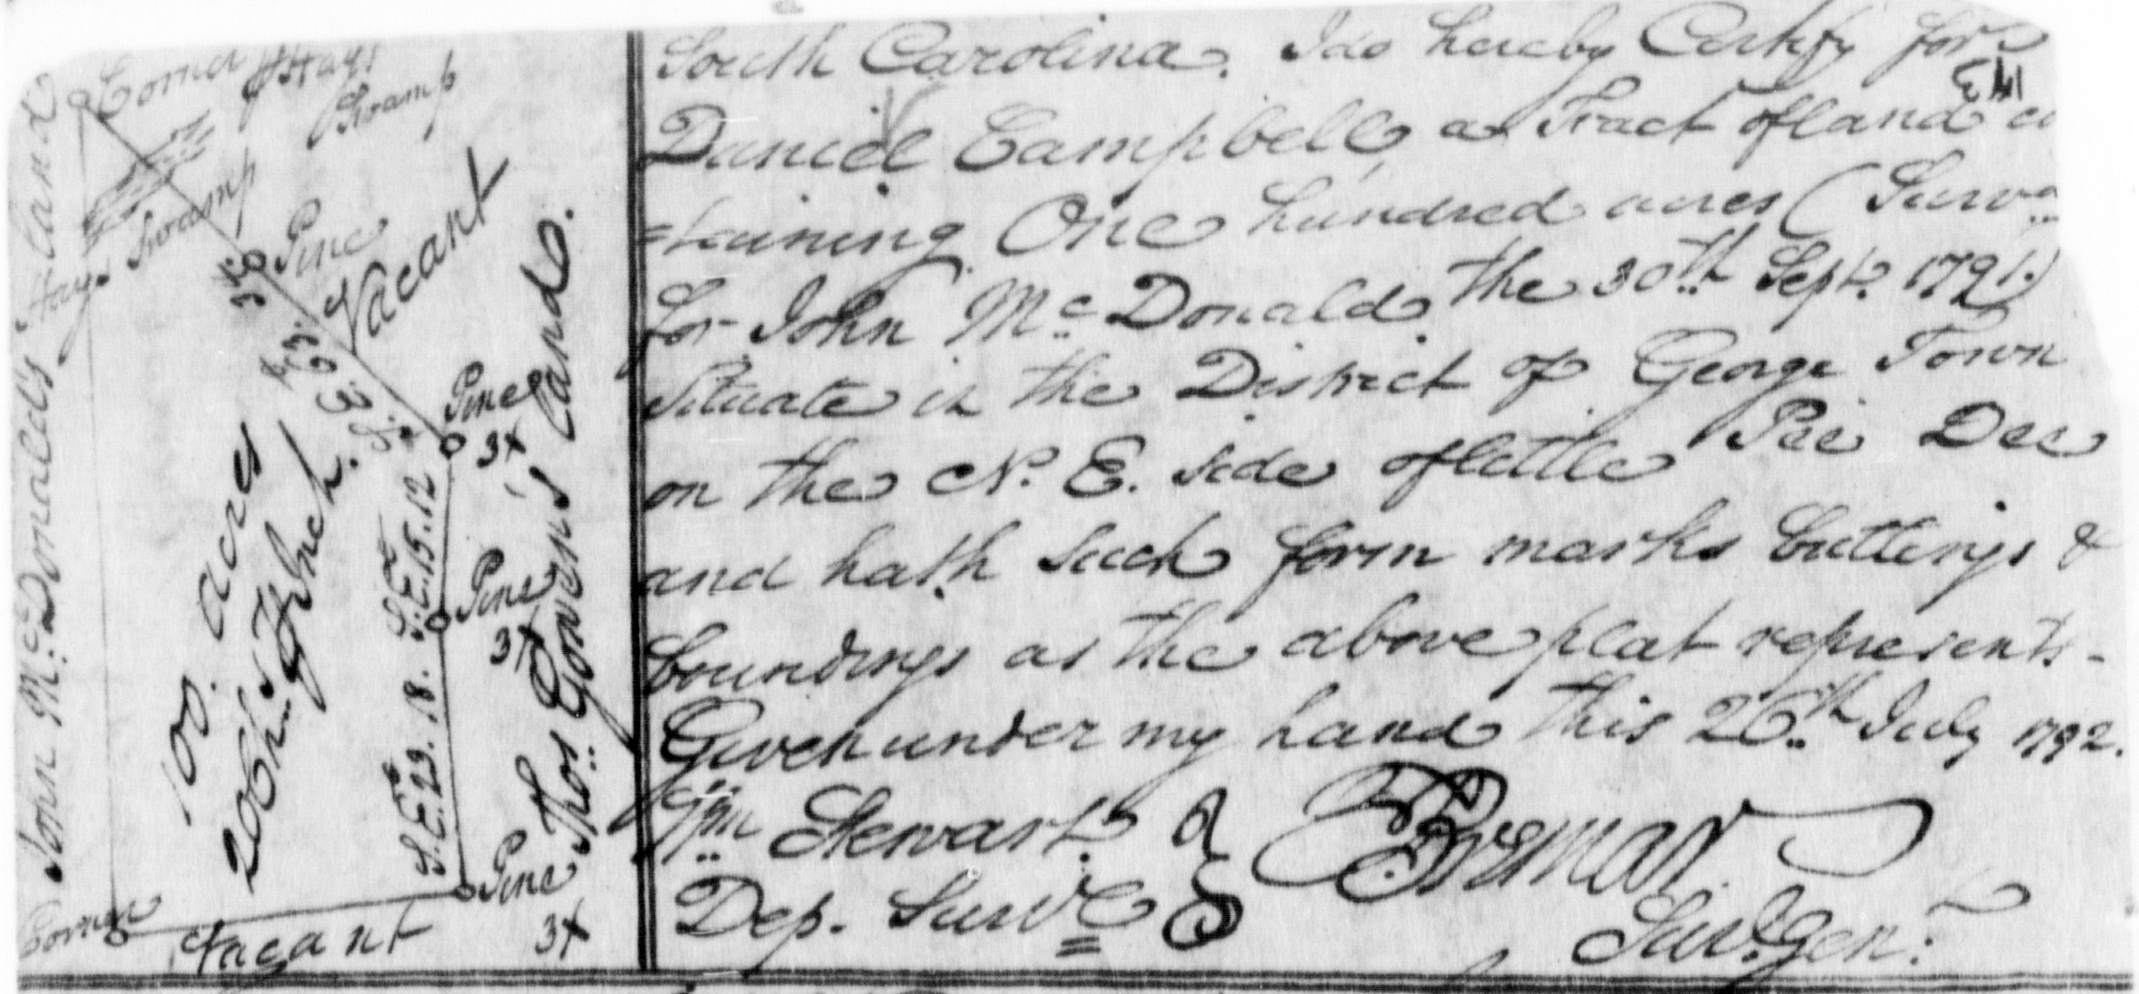 Corner Hays
Swamp
Hays Swamp
John Mc. Donald's Land
Pine
3x
Vacant
Pine
3x
100. acres
S.E. 15.12
Pine
3x
S.E. 29. 18.
Thos. Gowens's Land.
Pine
3x
Corner
Vacant
South Carolina. I do hereby Certify for
Daniel Campbell a Tract of land co
=taining One hundred acres (Surv.d
for John Mc Donald the 30th Sept. 1791.)
Situate in the District of George Town
on the N. E. side of little Pee Dee
and hath such form marks buttings &
boundings as the above plat represents -
Given under my hand this 26th July 1792.
Wm Stewart
Dep. Survr.
Bremar
Surv. Gen.